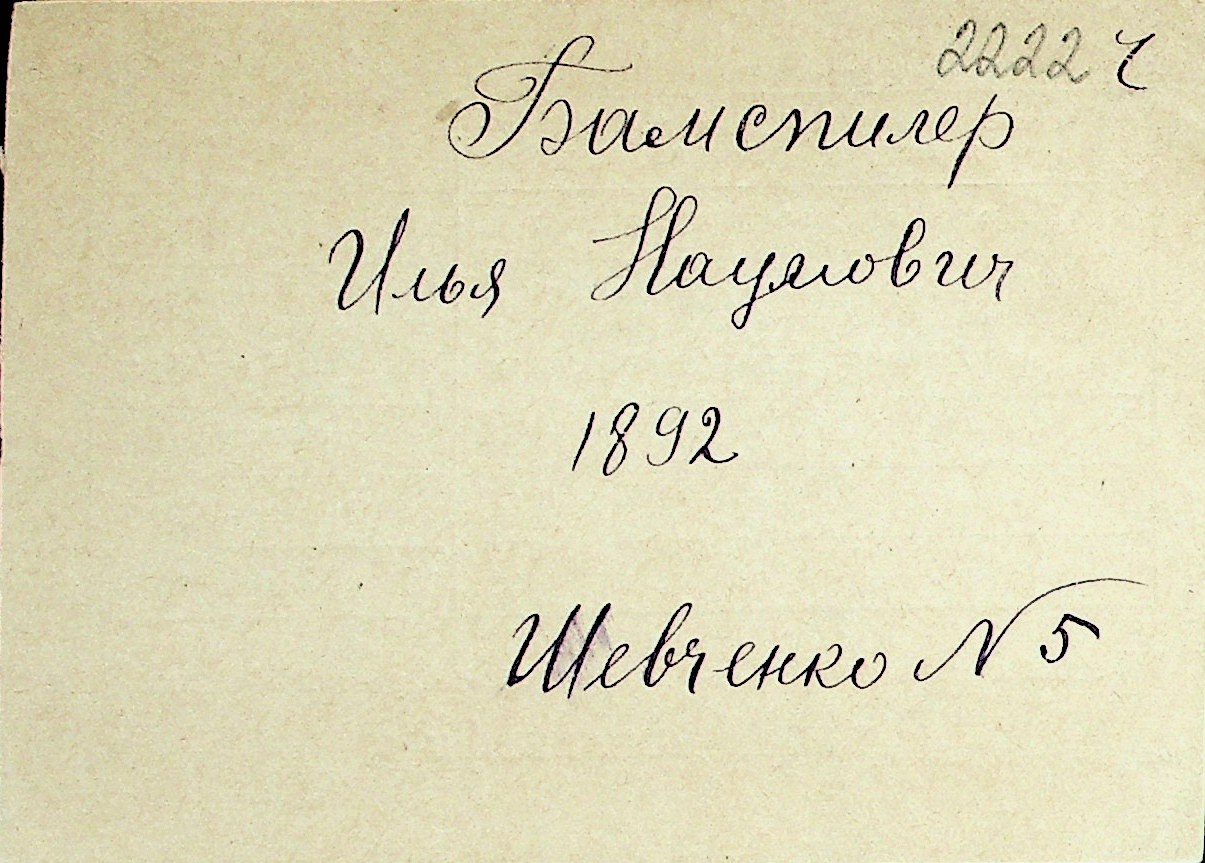 2222 ч
Бамспилер
Илья Наумович
1892
Шевченко № 5